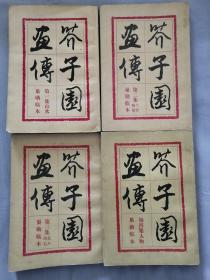 芥子園
畫傳
第一集山水
巢勳臨本
芥子園
畫傳
第二集
巢勳臨本
芥子園
畫傳
第三集
巢勳臨本
芥子園
畫傳
第四集人物
巢勳臨本